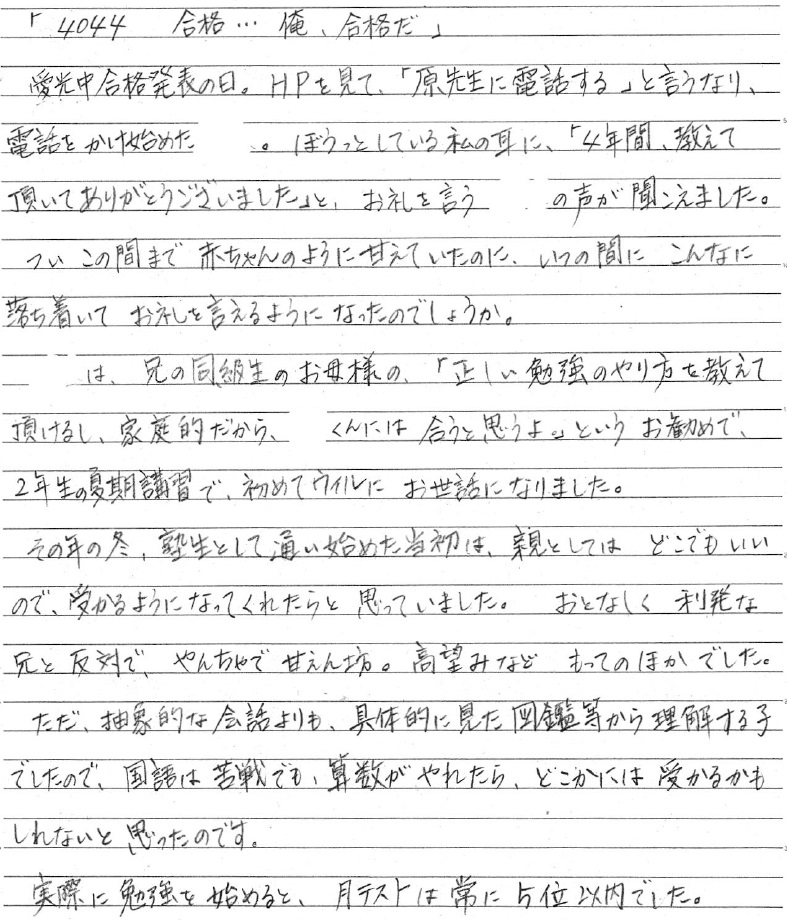 「4044　合格… 俺、合格だ」
愛光中合格発表の日。HPを見て、「原先生に電話する」と言うなり、
電話をかけ始めた　　。ぼうっとしている私の耳に、「4年間、教えて
頂いてありがとうございました」と、お礼を言う　　の声が聞こえました。
つい この間まで 赤ちゃんのように甘えていたのに、いつの間に こんなに
落ち着いて お礼を言えるように なったのでしょうか。
　　は、兄の同級生のお母様の、「正しい勉強のやり方を教えて
頂けるし、家庭的だから、　　くんには 合うと思うよ。」という お勧めで、
2年生の夏期講習で、初めてウイルに お世話になりました。
その年の冬、塾生として通い始めた当初は、親としては どこでもいい
ので、受かるようになってくれたらと 思っていました。 おとなしく 利発な
兄と 反対で、やんちゃで 甘えん坊。高望みなど もってのほかでした。
ただ、抽象的な会話よりも、具体的に見た図鑑等から理解する子
でしたので、国語は 苦戦でも、算数がやれたら、どこかには 受かるかも
しれないと 思ったのです。
実際に 勉強を 始めると、月テストは 常に 5位以内でした。